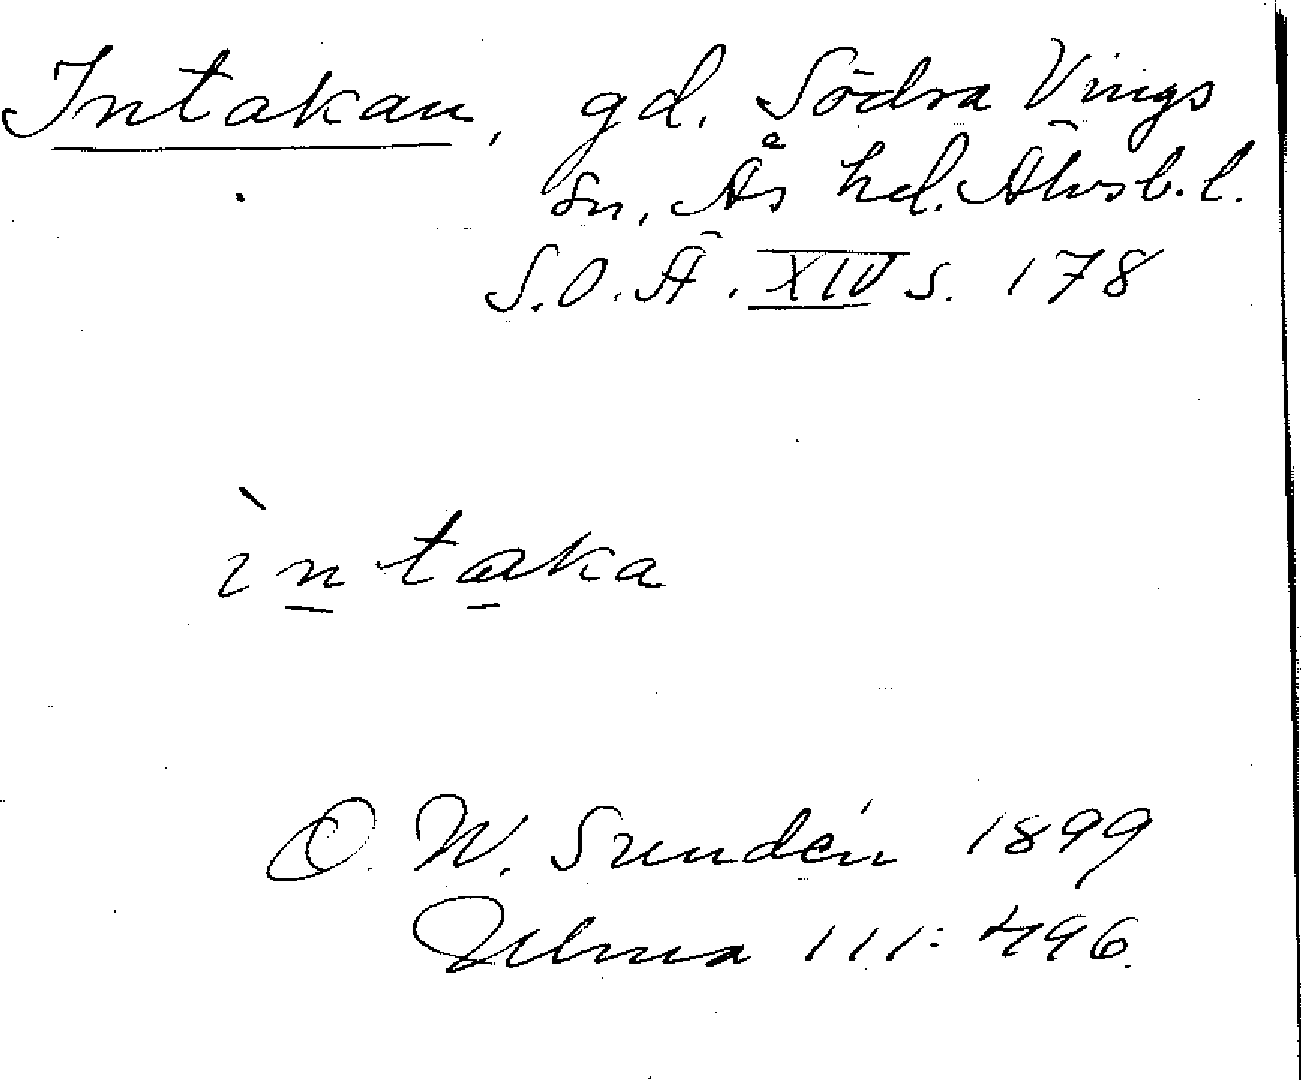 Intakan, gd. Södra Vings
sn, Ås hd. Älvsb. l.
S.O.Ä. XIV s. 178
ìntaka
O. W. Sundén 1899
Ulma 111:496.